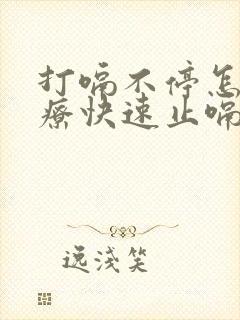 打嗝不停怎
疗快速止嗝
逸浅笑